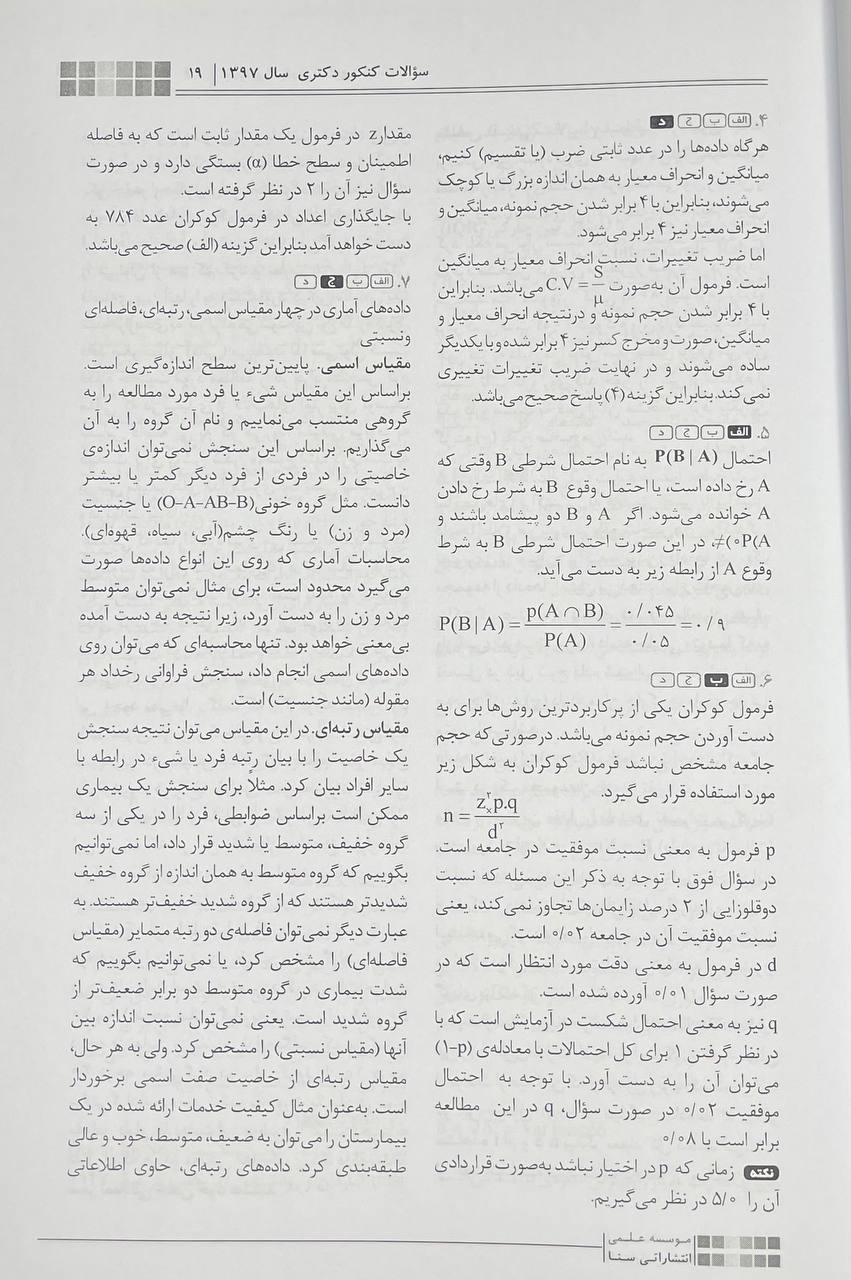 سؤالات کنکور دکتری سال ۱۳۹۷ | ۱۹
۴. الف ب ج د
هرگاه داده‌ها را در عدد ثابتی ضرب (یا تقسیم) کنیم،
میانگین و انحراف معیار به همان اندازه بزرگ یا کوچک
می‌شوند، بنابراین با ۴ برابر شدن حجم نمونه، میانگین و
انحراف معیار نیز ۴ برابر می‌شود.
اما ضریب تغییرات، نسبت انحراف معیار به میانگین
است. فرمول آن به‌صورت C.V = S/μ می‌باشد. بنابراین
با ۴ برابر شدن حجم نمونه و درنتیجه انحراف معیار و
میانگین، صورت و مخرج کسر نیز ۴ برابر شده و با یکدیگر
ساده می‌شوند و در نهایت ضریب تغییرات تغییری
نمی‌کند. بنابراین گزینه (۴) پاسخ صحیح می‌باشد.
۵. الف ب ج د
احتمال P(B | A) به نام احتمال شرطی B وقتی که
A رخ داده است، یا احتمال وقوع B به شرط رخ دادن
A خوانده می‌شود. اگر A و B دو پیشامد باشند و
P(A)≠۰، در این صورت احتمال شرطی B به شرط
وقوع A از رابطه زیر به دست می‌آید.
P(B | A) = p(A ∩ B) / P(A) = ۰/۰۴۵ / ۰/۰۵ = ۰/۹
۶. الف ب ج د
فرمول کوکران یکی از پرکاربردترین روش‌ها برای به
دست آوردن حجم نمونه می‌باشد. درصورتی‌که حجم
جامعه مشخص نباشد فرمول کوکران به شکل زیر
مورد استفاده قرار می‌گیرد.
n = z²ₓp.q / d²
p فرمول به معنی نسبت موفقیت در جامعه است.
در سؤال فوق با توجه به ذکر این مسئله که نسبت
دوقلوزایی از ۲ درصد زایمان‌ها تجاوز نمی‌کند، یعنی
نسبت موفقیت آن در جامعه ۰/۰۲ است.
d در فرمول به معنی دقت مورد انتظار است که در
صورت سؤال ۰/۰۱ آورده شده است.
q نیز به معنی احتمال شکست در آزمایش است که با
در نظر گرفتن ۱ برای کل احتمالات با معادله‌ی (۱-p)
می‌توان آن را به دست آورد. با توجه به احتمال
موفقیت ۰/۰۲ در صورت سؤال، q در این مطالعه
برابر است با ۰/۰۸
نکته زمانی که p در اختیار نباشد به‌صورت قراردادی
آن را ۵/۰ در نظر می‌گیریم.
مقدار z در فرمول یک مقدار ثابت است که به فاصله
اطمینان و سطح خطا (α) بستگی دارد و در صورت
سؤال نیز آن را ۲ در نظر گرفته است.
با جایگذاری اعداد در فرمول کوکران عدد ۷۸۴ به
دست خواهد آمد بنابراین گزینه (الف) صحیح می‌باشد.
۷. الف ب ج د
داده‌های آماری در چهار مقیاس اسمی، رتبه‌ای، فاصله‌ای
و نسبتی
مقیاس اسمی. پایین‌ترین سطح اندازه‌گیری است.
براساس این مقیاس شیء یا فرد مورد مطالعه را به
گروهی منتسب می‌نماییم و نام آن گروه را به آن
می‌گذاریم. براساس این سنجش نمی‌توان اندازه‌ی
خاصیتی را در فردی از فرد دیگر کمتر یا بیشتر
دانست. مثل گروه خونی(O-A-AB-B) یا جنسیت
(مرد و زن) یا رنگ چشم(آبی، سیاه، قهوه‌ای).
محاسبات آماری که روی این انواع داده‌ها صورت
می‌گیرد محدود است، برای مثال نمی‌توان متوسط
مرد و زن را به دست آورد، زیرا نتیجه به دست آمده
بی‌معنی خواهد بود. تنها محاسبه‌ای که می‌توان روی
داده‌های اسمی انجام داد، سنجش فراوانی رخداد هر
مقوله (مانند جنسیت) است.
مقیاس رتبه‌ای. در این مقیاس می‌توان نتیجه سنجش
یک خاصیت را با بیان رتبه فرد یا شیء در رابطه با
سایر افراد بیان کرد. مثلاً برای سنجش یک بیماری
ممکن است براساس ضوابطی، فرد را در یکی از سه
گروه خفیف، متوسط یا شدید قرار داد، اما نمی‌توانیم
بگوییم که گروه متوسط به همان اندازه از گروه خفیف
شدیدتر هستند که از گروه شدید خفیف‌تر هستند. به
عبارت دیگر نمی‌توان فاصله‌ی دو رتبه متمایر (مقیاس
فاصله‌ای) را مشخص کرد، یا نمی‌توانیم بگوییم که
شدت بیماری در گروه متوسط دو برابر ضعیف‌تر از
گروه شدید است. یعنی نمی‌توان نسبت اندازه بین
آنها (مقیاس نسبتی) را مشخص کرد. ولی به هر حال،
مقیاس رتبه‌ای از خاصیت صفت اسمی برخوردار
است. به‌عنوان مثال کیفیت خدمات ارائه شده در یک
بیمارستان را می‌توان به ضعیف، متوسط، خوب و عالی
طبقه‌بندی کرد. داده‌های رتبه‌ای، حاوی اطلاعاتی
موسسه علمی
انتشاراتی سنا